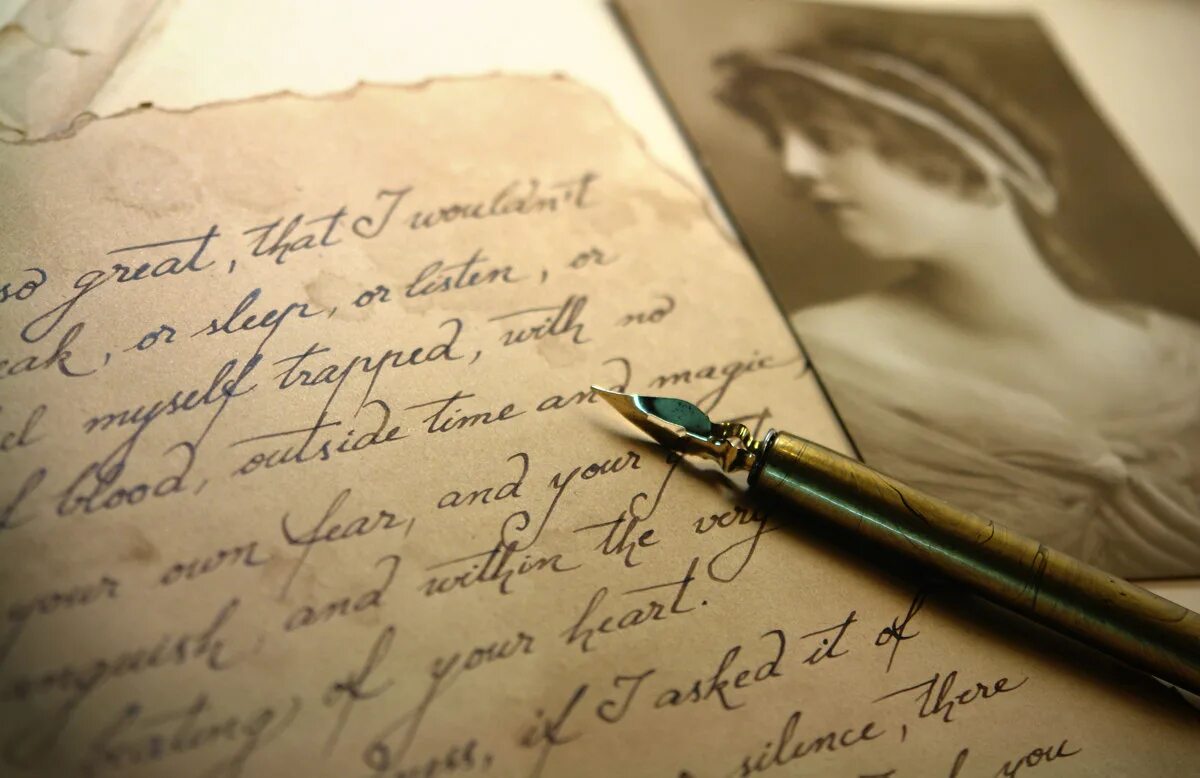 so great, that I wouldn't
eak, or sleep, or listen, or
el myself trapped, with no
of blood, outside time and magic,
your own fear, and your
anguish and within the very
beating of your heart.
if I asked it of
silence, there
you